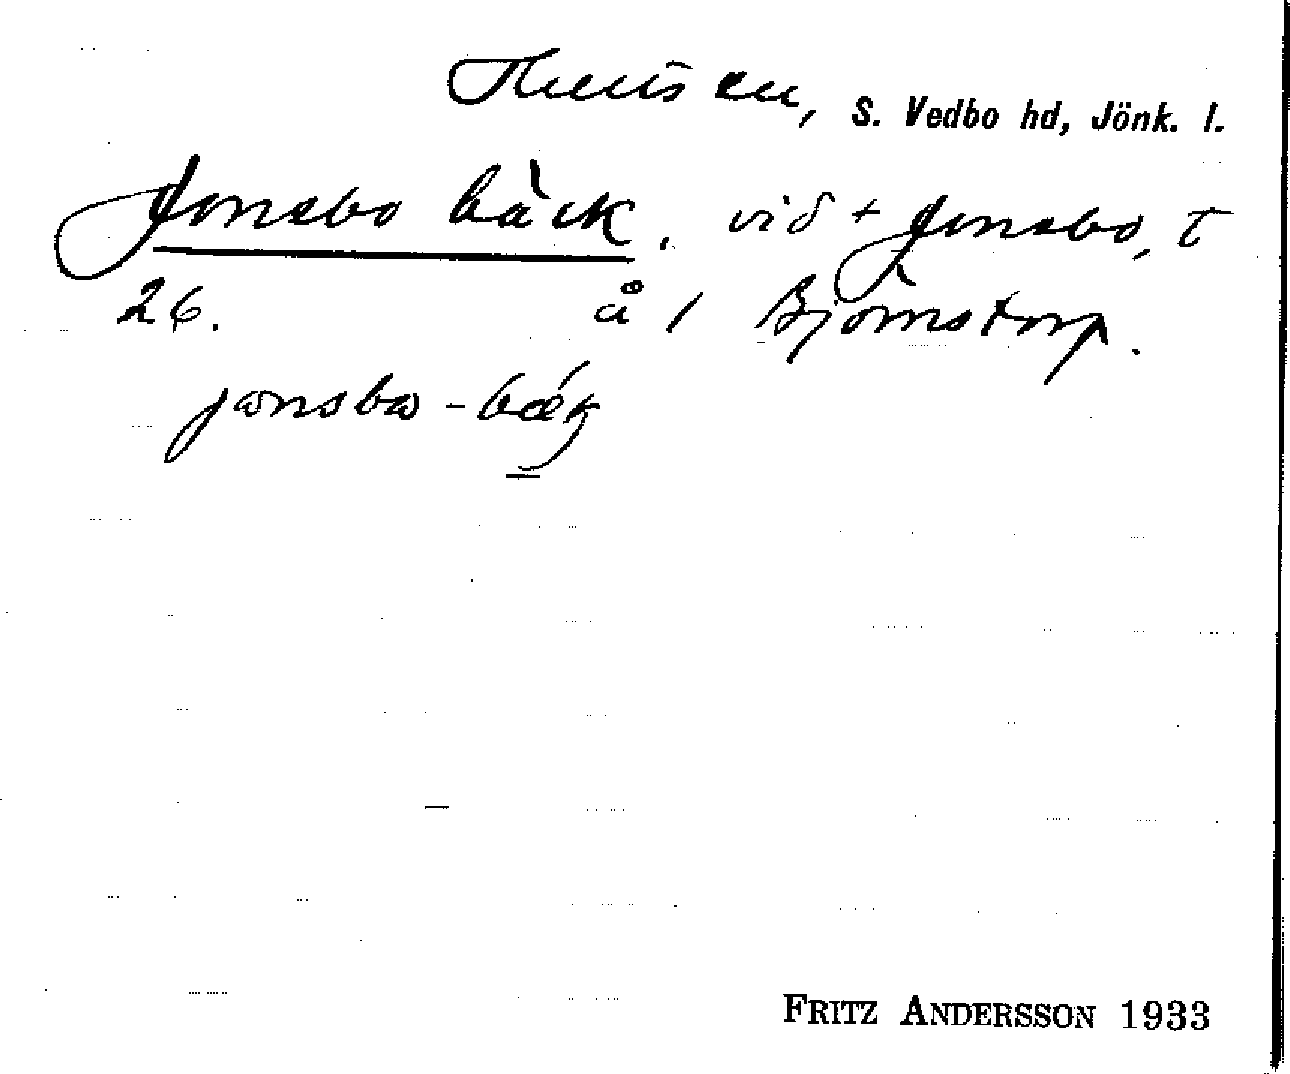 Hullsjön, S. Vedbo hd, Jönk. l.
Jonsbo bäck. vid + Jonsbo, t
26. å 1 Björnstorp.
jonsbo-bæk
FRITZ ANDERSSON 1933